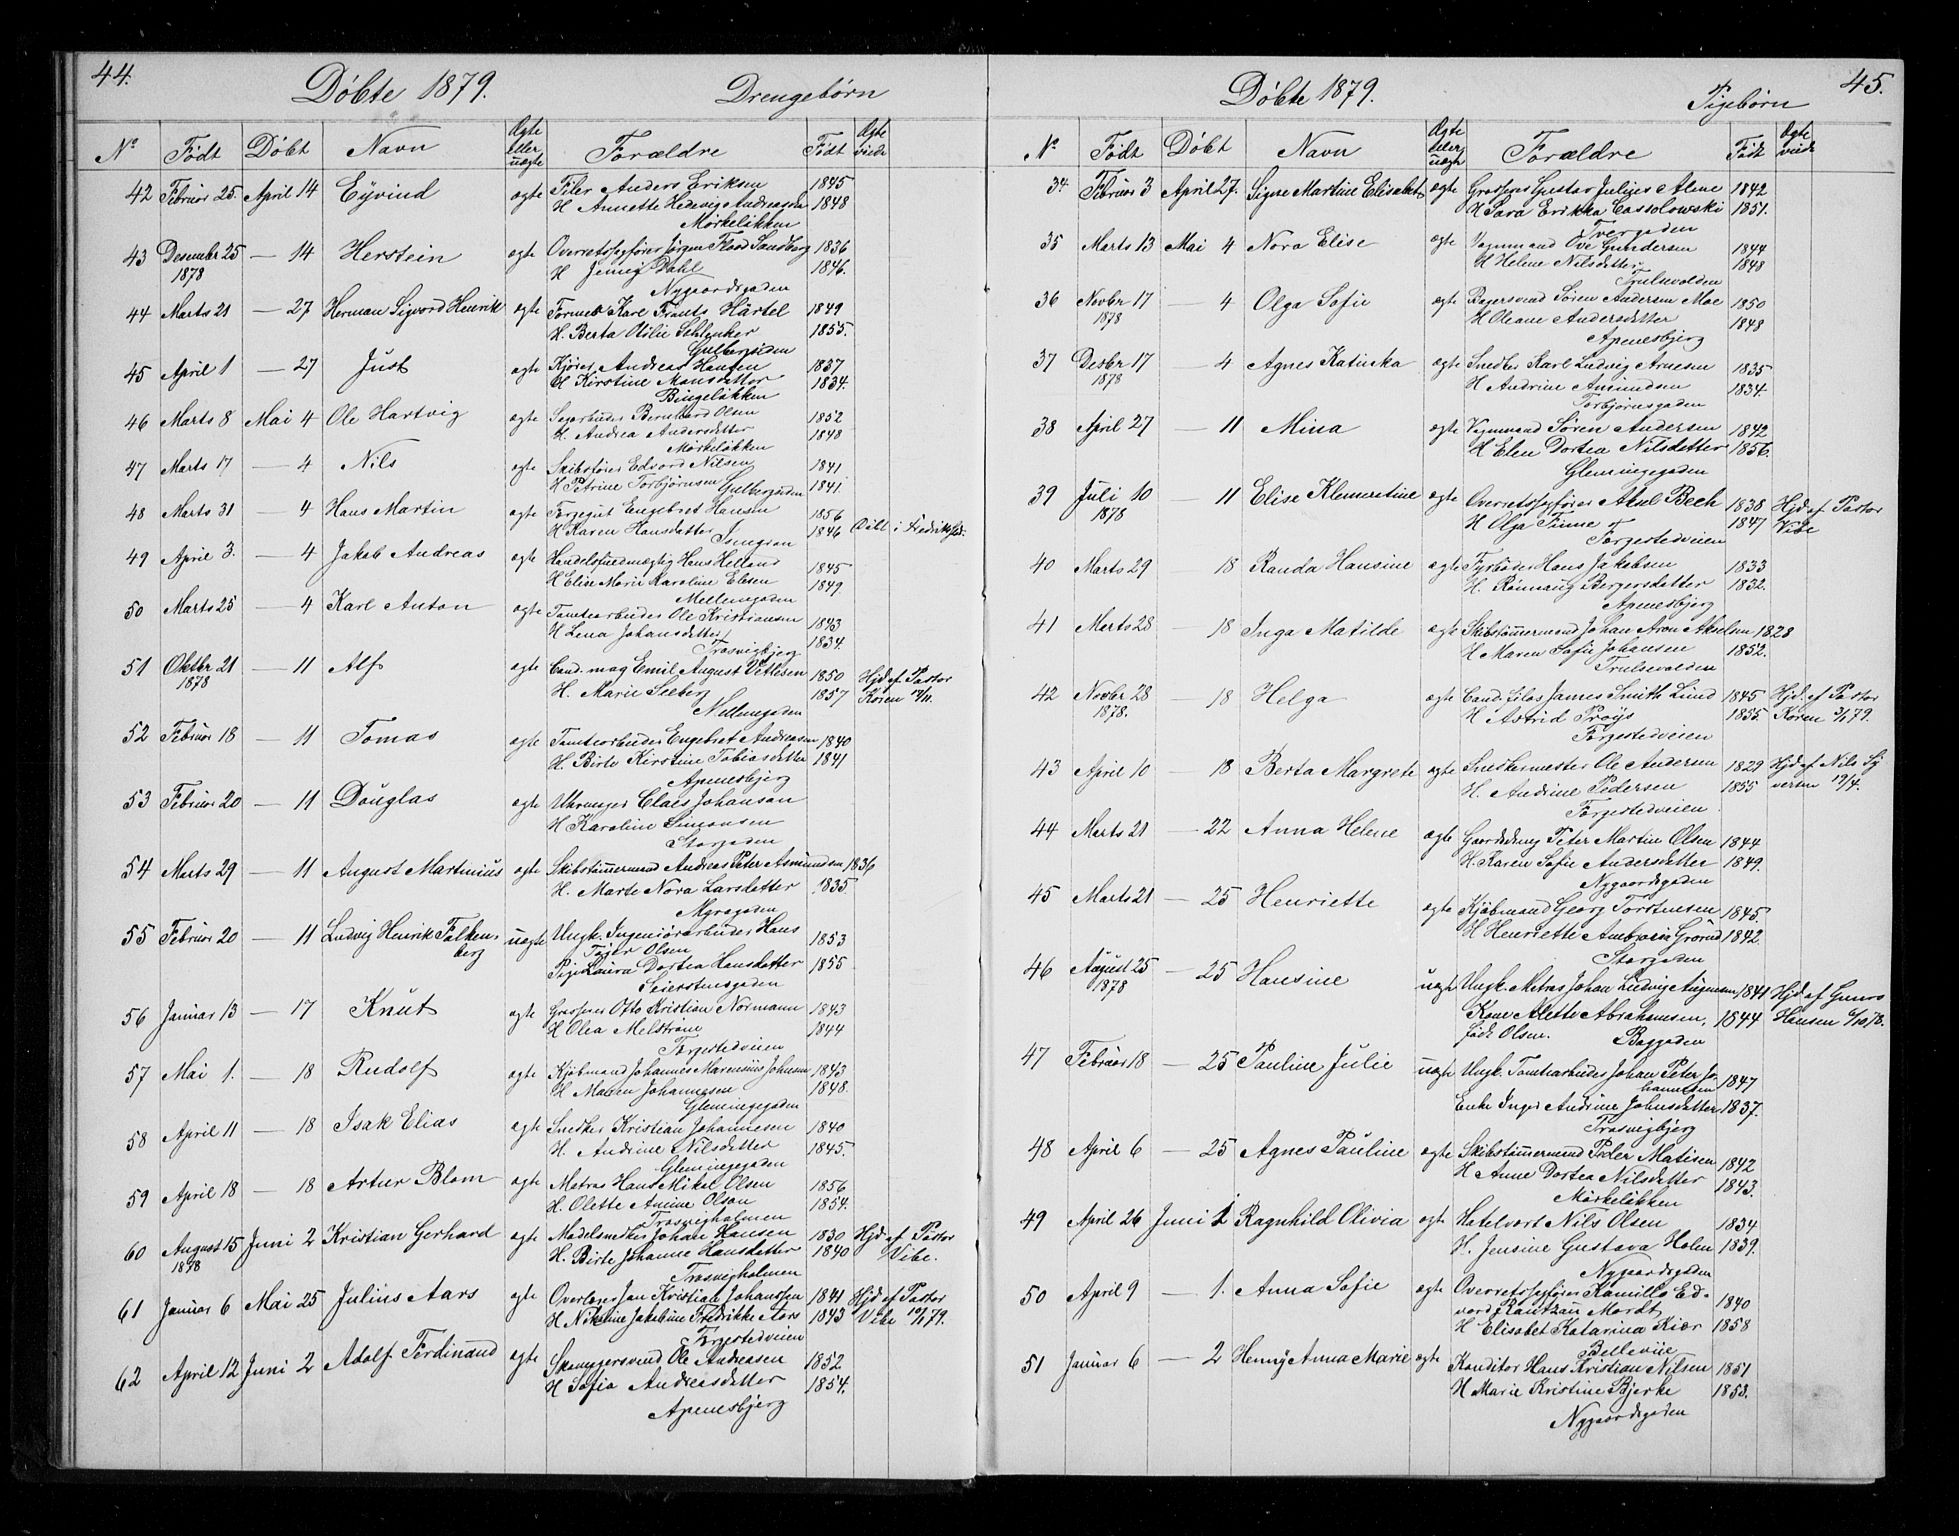 44.
Døbte 1879. Drengebørn
No Født Døbt Navn Ægte eller uægte Forældre Født Ægte viede
42 Februar 25. April 14 Eyvind ægte Filer Anders Eriksen 1845
H Annette Hedevig Andreasen 1848
Mørkeløkken
43 Desember 25 — 14 Herstein ægte Overretssagfører Jørgen Flood Sandberg 1836
1878 H Jenny Dahl 1846.
Nygaardsgaden
44 Marts 21 — 27 Herman Sigvard Henrik ægte Former Karl Frants Härtel 1849
H. Berta Otilie Schlenker 1855.
Gulbergsiden
45 April 1 — 27 Just ægte Kjører Andreas Hansen 1837
H Kirstine Mansdatter 1834.
Bingeløkken
46 Marts 8 Mai 4 Ole Hartvig ægte Sagarbeider Bernhard Olsen 1852
H. Andrea Andersdatter 1848
Mørkeløkken
47 Marts 17 — 4 Nils ægte Skibsfører Edvard Nilsen 1841
H Petrine Torbjørnsen Gulbergsiden 1841.
48 Marts 31 — 4 Hans Martin ægte Engebret Hansen 1856
H Karen Hansdatter 1846 i Fredrikshd.
49 April 3. — 4 Jakob Andreas ægte Handelsfuldmægtig Hans Helland 1845
H Elise Marie Karoline Elisen 1849.
Mellemgaden
50 Marts 25 — 4 Karl Anton ægte Tomtearbeider Ole Kristiansen 1843
H Lena Johansdatter 1834.
Trosvigbjerg
51 Oktbr 21 — 11 Alf ægte Cand. mag Emil August Vetlesen 1850 Hjd af Pastor
1878 H. Marie Seeberg 1857 Koren
Mellemgaden
52 Februar 18 — 11 Tomas ægte Tomtearbeider Engebret Andreasen 1840
H. Birte Kirstine Tobiasdatter 1841
Apenesbjerg
53 Februar 20 — 11 Douglas ægte Uhrmager Claes Johanson
H Karoline Simonsen
Storgaden
54 Marts 29 — 11 August Martinius ægte Skibstømmermand Andreas Peter Asmundsen 1836
H. Marte Nora Larsdatter 1835.
Myragaden
55 Februar 20 — 11 Ludvig Henrik Falken- uægte Ungk. Ingeniørarbeider Hans 1853
berg Tøger Olsen
Pige Laura Dortea Hansdatter 1855
Seierstensgaden
56 Januar 13 — 17 Knut ægte Grosserer Otto Kristian Normann 1843
H Olea Melstrøm 1844
Torgestedveien
57 Mai 1. — 18 Rudolf ægte Kjøbmand Johannes Marensius Johnsen 1843
H Maren Johannesen 1848.
Glemmegegaden
58 April 11 — 18 Isak Elias ægte Snedker Kristian Johannesen 1840
H. Andrine Nilsdatter 1845.
Glemmegegaden
59 April 18 — 18 Artur Blom ægte Matros Hans Mikal Olsen 1856
H. Olette Amine Olson 1854.
Trosvigholmen
60 August 15 Juni 2 Kristian Gerhard ægte Modelsnedker Johan Hansen 1830 Hjd af Pastor
1878 H. Birte Johanne Hansdatter 1840 Vibe.
Trosvigholmen
61 Januar 6 Mai 25 Julius Aars ægte Overlærer Jan Kristian Johanssen 1841 Hjd af Pastor
H Nikoline Jakobine Fredrikke Aars 1843 Vibe
Torgestedveien
62 April 12 Juni 2 Adolf Ferdinand ægte Ole Andreasen 1852
H Sofia Andreasdatter 1854.
Apenesbjerg
45.
Døbte 1879. Pigebørn
No Født Døbt Navn Ægte eller uægte Forældre Født Ægte viede
34 Februar 3 April 27. Signe Martine Elisabet ægte Grosserer Gustav Julius Alme 1842.
H Sara Erikka Cassolowski 1851.
Tvergaden
35 Marts 13 Mai 4 Nora Elise ægte Vognmand Ove Gundersen 1844
H Helene Nilsdatter 1848
Trulsevolden
36 Novbr 17 — 4 Olga Sofie ægte Bagersvend Søren Andersen Moe 1850
1878 H Oleane Andersdatter 1848
Apenesbjerg
37 Desbr 17 — 4 Agnes Katinka ægte Snedker Karl Ludvig Arnesen 1835
1878 H Andrine Amundsen 1834.
Torbjørnsgaden
38 April 27 — 11 Mina ægte Vognmand Søren Andersen 1842
H Elen Dortea Nilsdatter 1856.
Glemmegegaden
39 Juli 10 — 11 Elise Klementine ægte Overretssagfører Aksel Bech 1838 Hjd af Pastor
1878 H Olga Thime 1847 Vibe
Torgestedveien
40 Marts 29 18 Randa Hansine ægte Fyrbøder Hans Jakobsen 1833
H. Rønnaug Bergersdatter 1832.
Apenesbjerg
41 Marts 28 — 18 Inga Matilde ægte Skibstømmermand Johan Aron Akselsen 1828
H Maren Sofie Johansen 1852.
Trulsevolden
42 Novbr 28 — 18 Helga ægte Cand. filos James Smith Lund 1845 Hjd. af Pastor
1878. H Astrid Prøis 1855. Koren 3/1 79.
Torgestedveien
43 April 10 — 18 Berta Margrete ægte Snedkermester Ole Andersen 1829 Hjd af Nils Sy
H. Andrine Pedersen 1855 vertsen 19/4.
Torgestedveien
44 Marts 21 — 22 Anna Helene ægte Peter Martin Olsen 1844
H. Karen Sofie Andersdatter 1849.
Nygaardsgaden
45 Marts 21 — 25 Henriette ægte Kjøbmand Georg Torstensen 1845.
H Henriette Ambrosia Grorud 1842.
Storgaden
46 August 25 — 25 Hansine uægte Ungk. Matros Johan Ludvig 1841 Hjd af Gunro
1878 Kone Alette Abrahamsen, 1844 Hansen 6/10 78.
født Olsen. Baggaden
47 Februar 18 — 25 Pauline Julie uægte Ungk. Tomtearbeider Johan Peter Jo- 1847
hannesen
Enke Inger Andrine Johnsdatter 1837.
Trosvigbjerg
48 April 6 — 25 Agnes Pauline ægte Skibstømmermand Peder Matisen 1842
H Anne Dortea Nilsdatter 1843.
Mørkeløkken
49 April 26 Juni 1 Ragnhild Olivia ægte Hotelvært Nils Olsen 1834
H. Jensine Gustava Holm 1839.
Nygaardsgaden
50 April 9 — 1. Anna Sofie ægte Overretssagfører Kamillo Ed- 1840
vard Rantzau Mordt
H Elisabet Katarina Kiær 1858
Bellevue
51 Januar 6 — 2 Henny Anna Marie ægte Konditor Hans Kristian Nilsen 1851
H Marie Kristine Bjerke 1853.
Nygaardsgaden